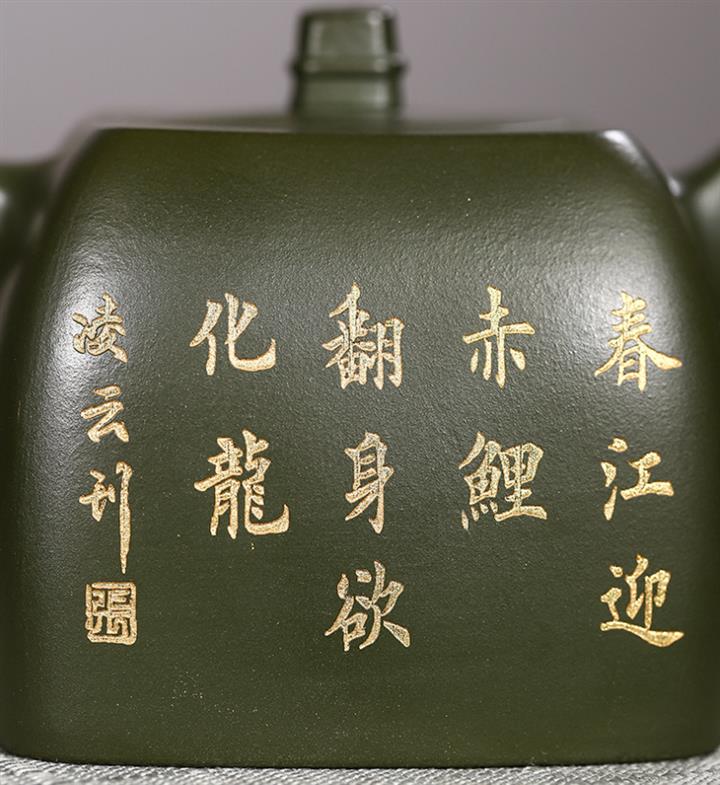 春江迎
赤鯉
翻身欲
化龍
凌云刊
張